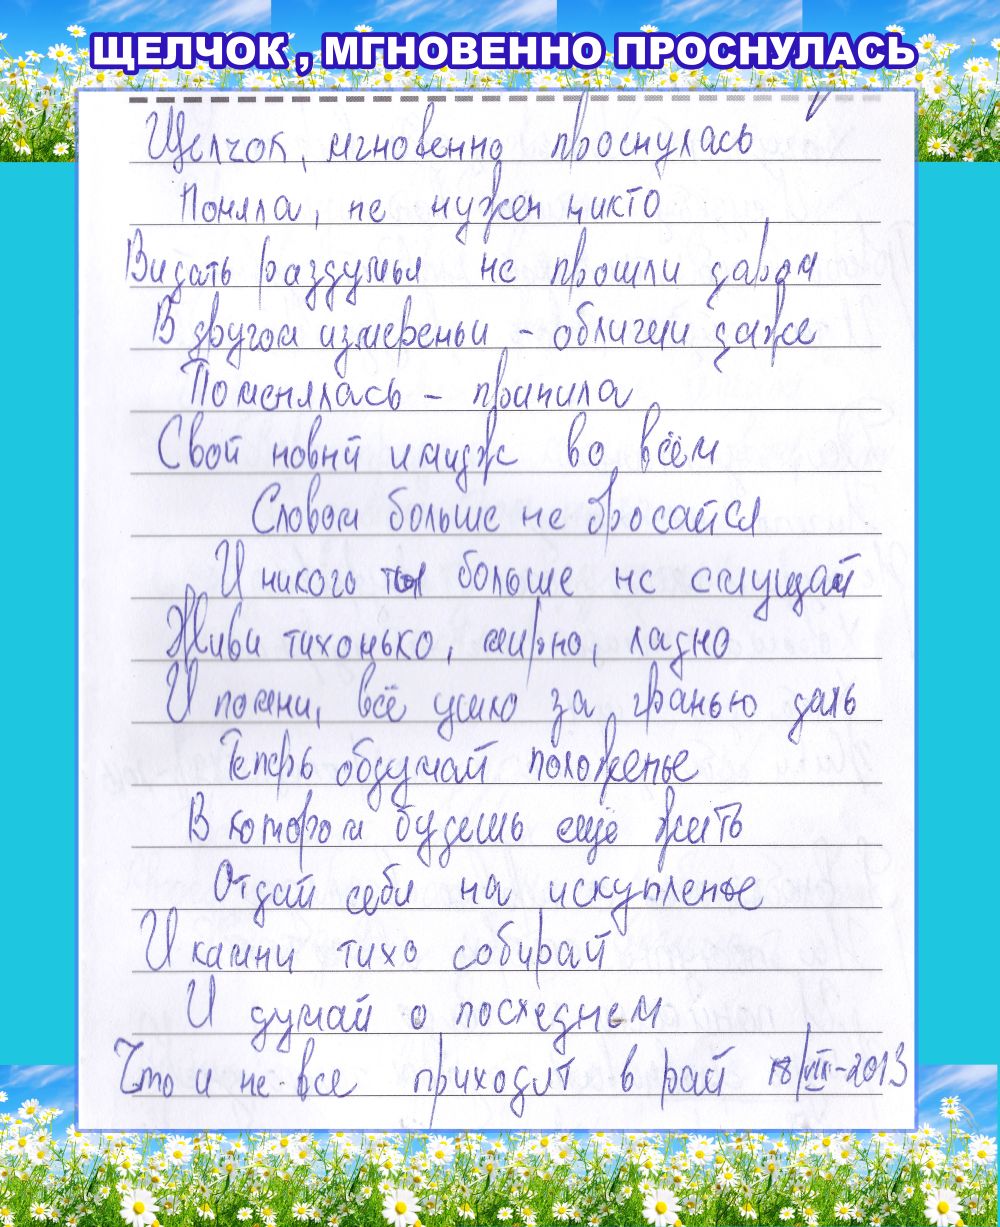 ЩЕЛЧОК , МГНОВЕННО ПРОСНУЛАСЬ
Щелчок, мгновенно проснулась
Поняла, не нужен никто
Видать раздумья не прошли даром
В другом измереньи - обличии даже
Поменялась - приняла
Свой новый имидж во всём
Словом больше не бросайся
И никого ты больше не смущай
Живи тихонько, мирно, ладно
И помни, всё ушло за гранью даль
Теперь обдумай положенье
В котором будешь ещё жить
Отдай себя на искупленье
И камни тихо собирай
И думай о последнем
Что и не все приходят в рай 18/VIII-2013